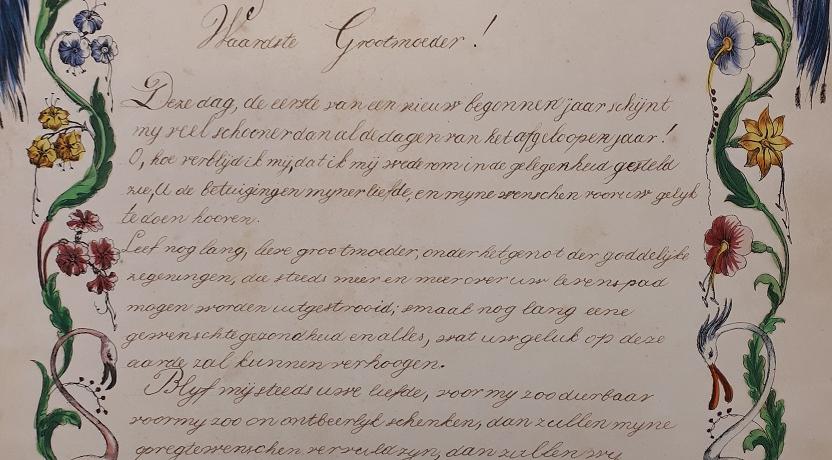 Waardste Grootmoeder!
Deze dag, de eerste van een nieuw begonnen jaar schijnt
my veel schooner dan al de dagen van het afgeloopen jaar!
O, hoe verblijd ik mij, dat ik mij wederom in de gelegenheid gesteld
zie, U de betuigingen myner liefde, en myne wenschen voor uw geluk
te doen hooren.
Leef nog lang, lieve grootmoeder, onder het genot der goddelijke
zegeningen, die steeds meer en meer over uw levenspad
mogen worden uitgestrooid; smaak nog lang eene
gewenschte gezondheid en alles, wat uw geluk op deze
aarde zal kunnen verhoogen.
Blyf mij steeds uwe liefde, voor my zoo dierbaar
voor my zoo on ontbeerlyk schenken, dan zullen myne
opregte wenschen vervuld zyn, dan zullen wy